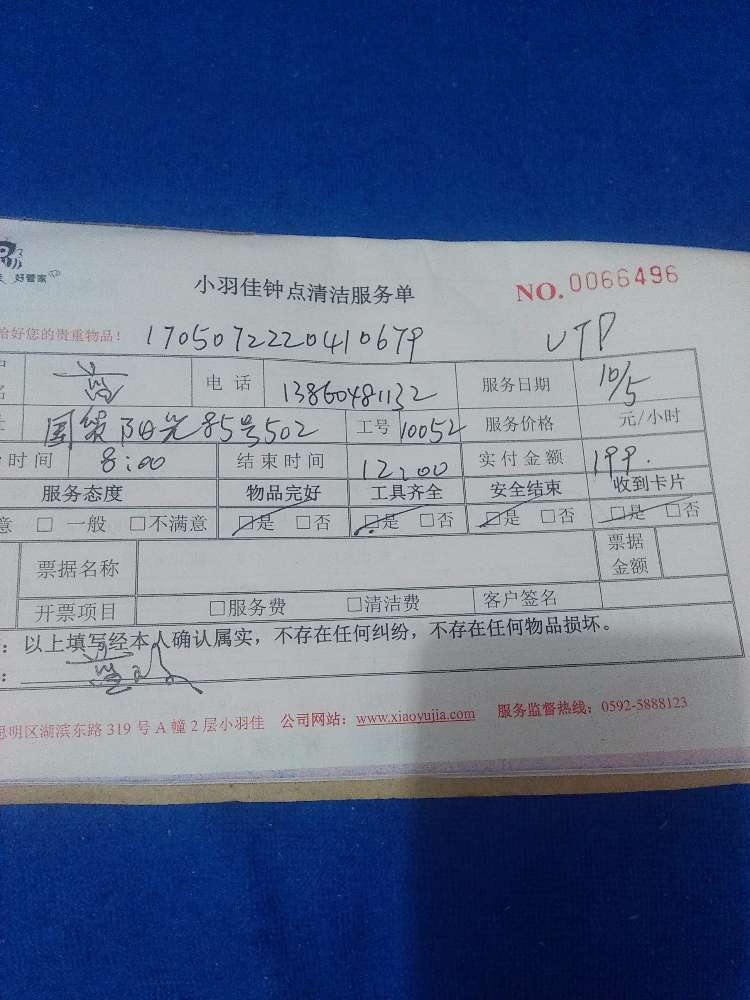 好管家
小羽佳钟点清洁服务单 NO.0066496
给好您的贵重物品! 170507222041067P VTP
电 话 13860481132 服务日期 10/5
国策阳光85号502 工号 10052 服务价格 元/小时
时间 8:00 结束时间 12:00 实付金额 199.
服务态度 物品完好 工具齐全 安全结束 收到卡片
意 □ 一般 □不满意 □是 □否 □是 □否 □是 □否 □是 □否
票据名称 票据金额
开票项目 □服务费 □清洁费 客户签名
：以上填写经本人确认属实，不存在任何纠纷，不存在任何物品损坏。
思明区湖滨东路 319 号 A 幢 2 层小羽佳 公司网站：www.xiaoyujia.com 服务监督热线：0592-5888123